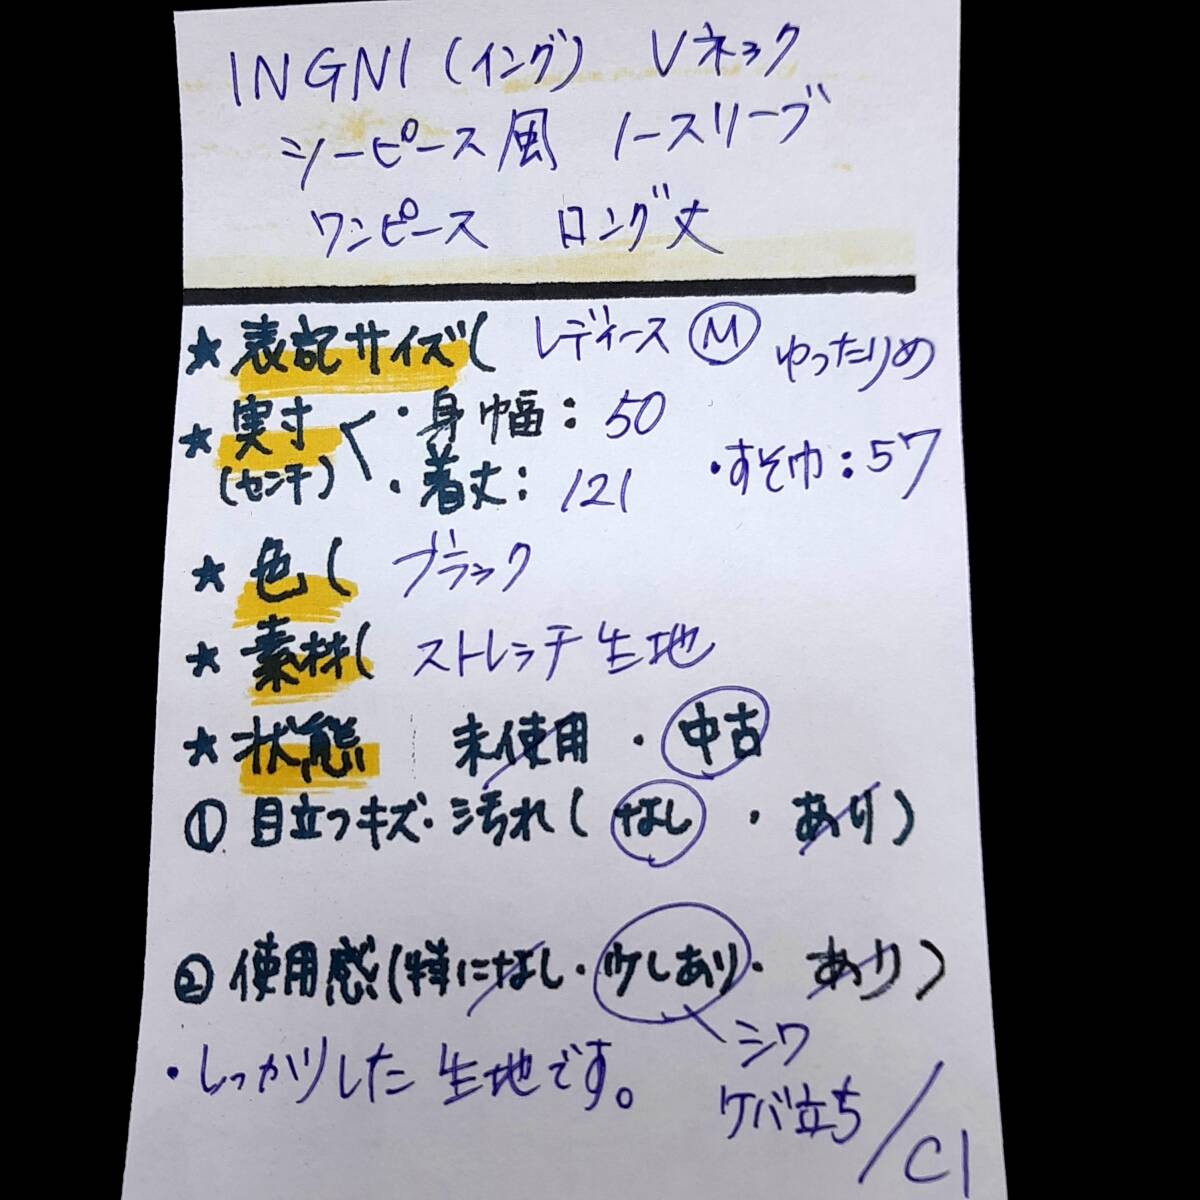 INGNI (イング) Vネック
シーピース風 ノースリーブ
ワンピース ロング丈
★ 表記サイズ( レディース Ⓜ ゆったりめ
★ 実寸 ・身幅: 50
(センチ) ・着丈: 121 ・すそ巾:57
★ 色( ブラック
★ 素材( ストレッチ生地
★ 状態 未使用 ・ 中古
① 目立つキズ・汚れ( なし ・ あり )
② 使用感(特になし・少しあり・ あり )
シワ
・しっかりした生地です。 ケバ立ち
/C1